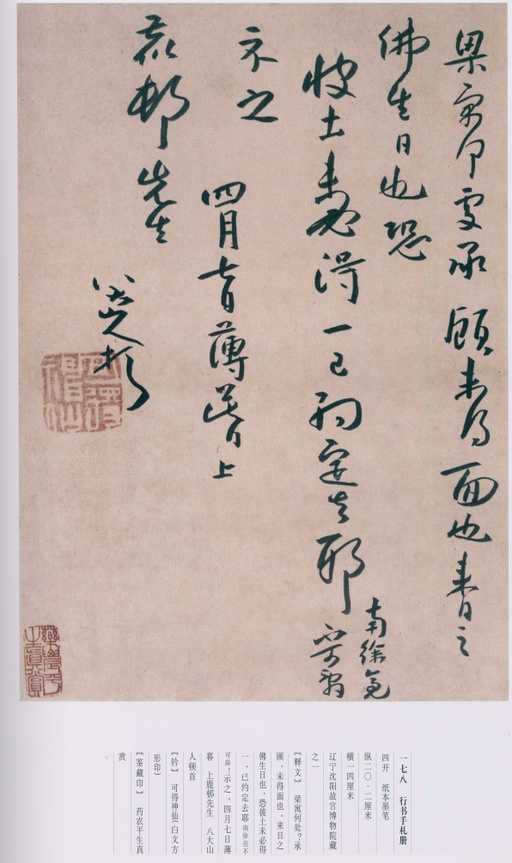 梁寓何處承顧未得面也来日之
佛生日也恐
彼土未必得一已約定去耶
南徐亮
示之
四月七日薄暮上
鹿邨先生
八大山人
可得神仙
藥農平生真賞
一七八 行书手札册
四开 纸本墨笔
纵二〇·二厘米
横一四厘米
辽宁沈阳故宫博物院藏
之一
【释文】 梁寓何处?承
顾,未得面也。来日之
佛生日也。恐彼土未必得
一,已约定去耶 南徐亮不
可辞?示之。四月七日薄
暮 上鹿邨先生 八大山
人顿首
【钤】 可得神仙(白文方
形印)
【鉴藏印】 药农平生真
赏